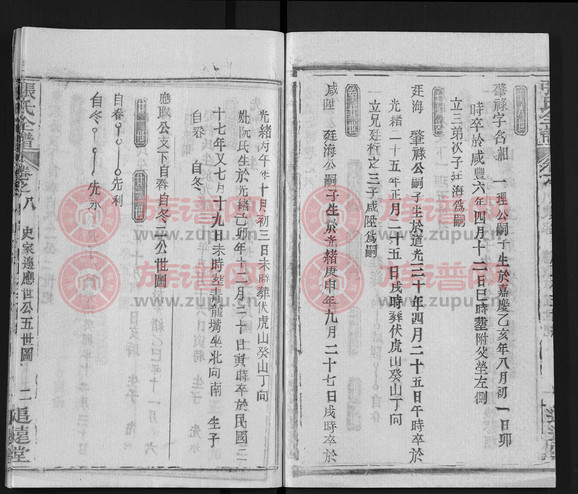 張氏全譜
肇祿字名組 一理公嗣子生於嘉慶乙亥年八月初一日卯
時卒於咸豐六年四月十二日巳時塟附父塋左側
立三弟次子廷海爲嗣
廷海 肇祿公嗣子生於道光三十年四月二十五日午時卒於
光緒二十五年正月二十五日戌時葬伏虎山癸山丁向
立兄廷 之三子咸陞爲嗣
咸陞 廷海公嗣子生於光緒庚申年九月二十七日戌時卒於
光緒丙午年十月初三日未時葬伏虎山癸山丁向
阮氏生於光緒己卯年十二月二十日寅時卒於民國二
十七年又七月十九日未時 坐北向南 生子
自春 自冬
應 公支下自春自冬二公世圖
自春 先利
自冬 先永
張氏全譜 卷之八 史家邊應世公五世圖 二 追遠堂
族谱网
www.zupu.cn
族谱网
www.zupu.cn
族谱网
www.zupu.cn
族谱网
www.zupu.cn